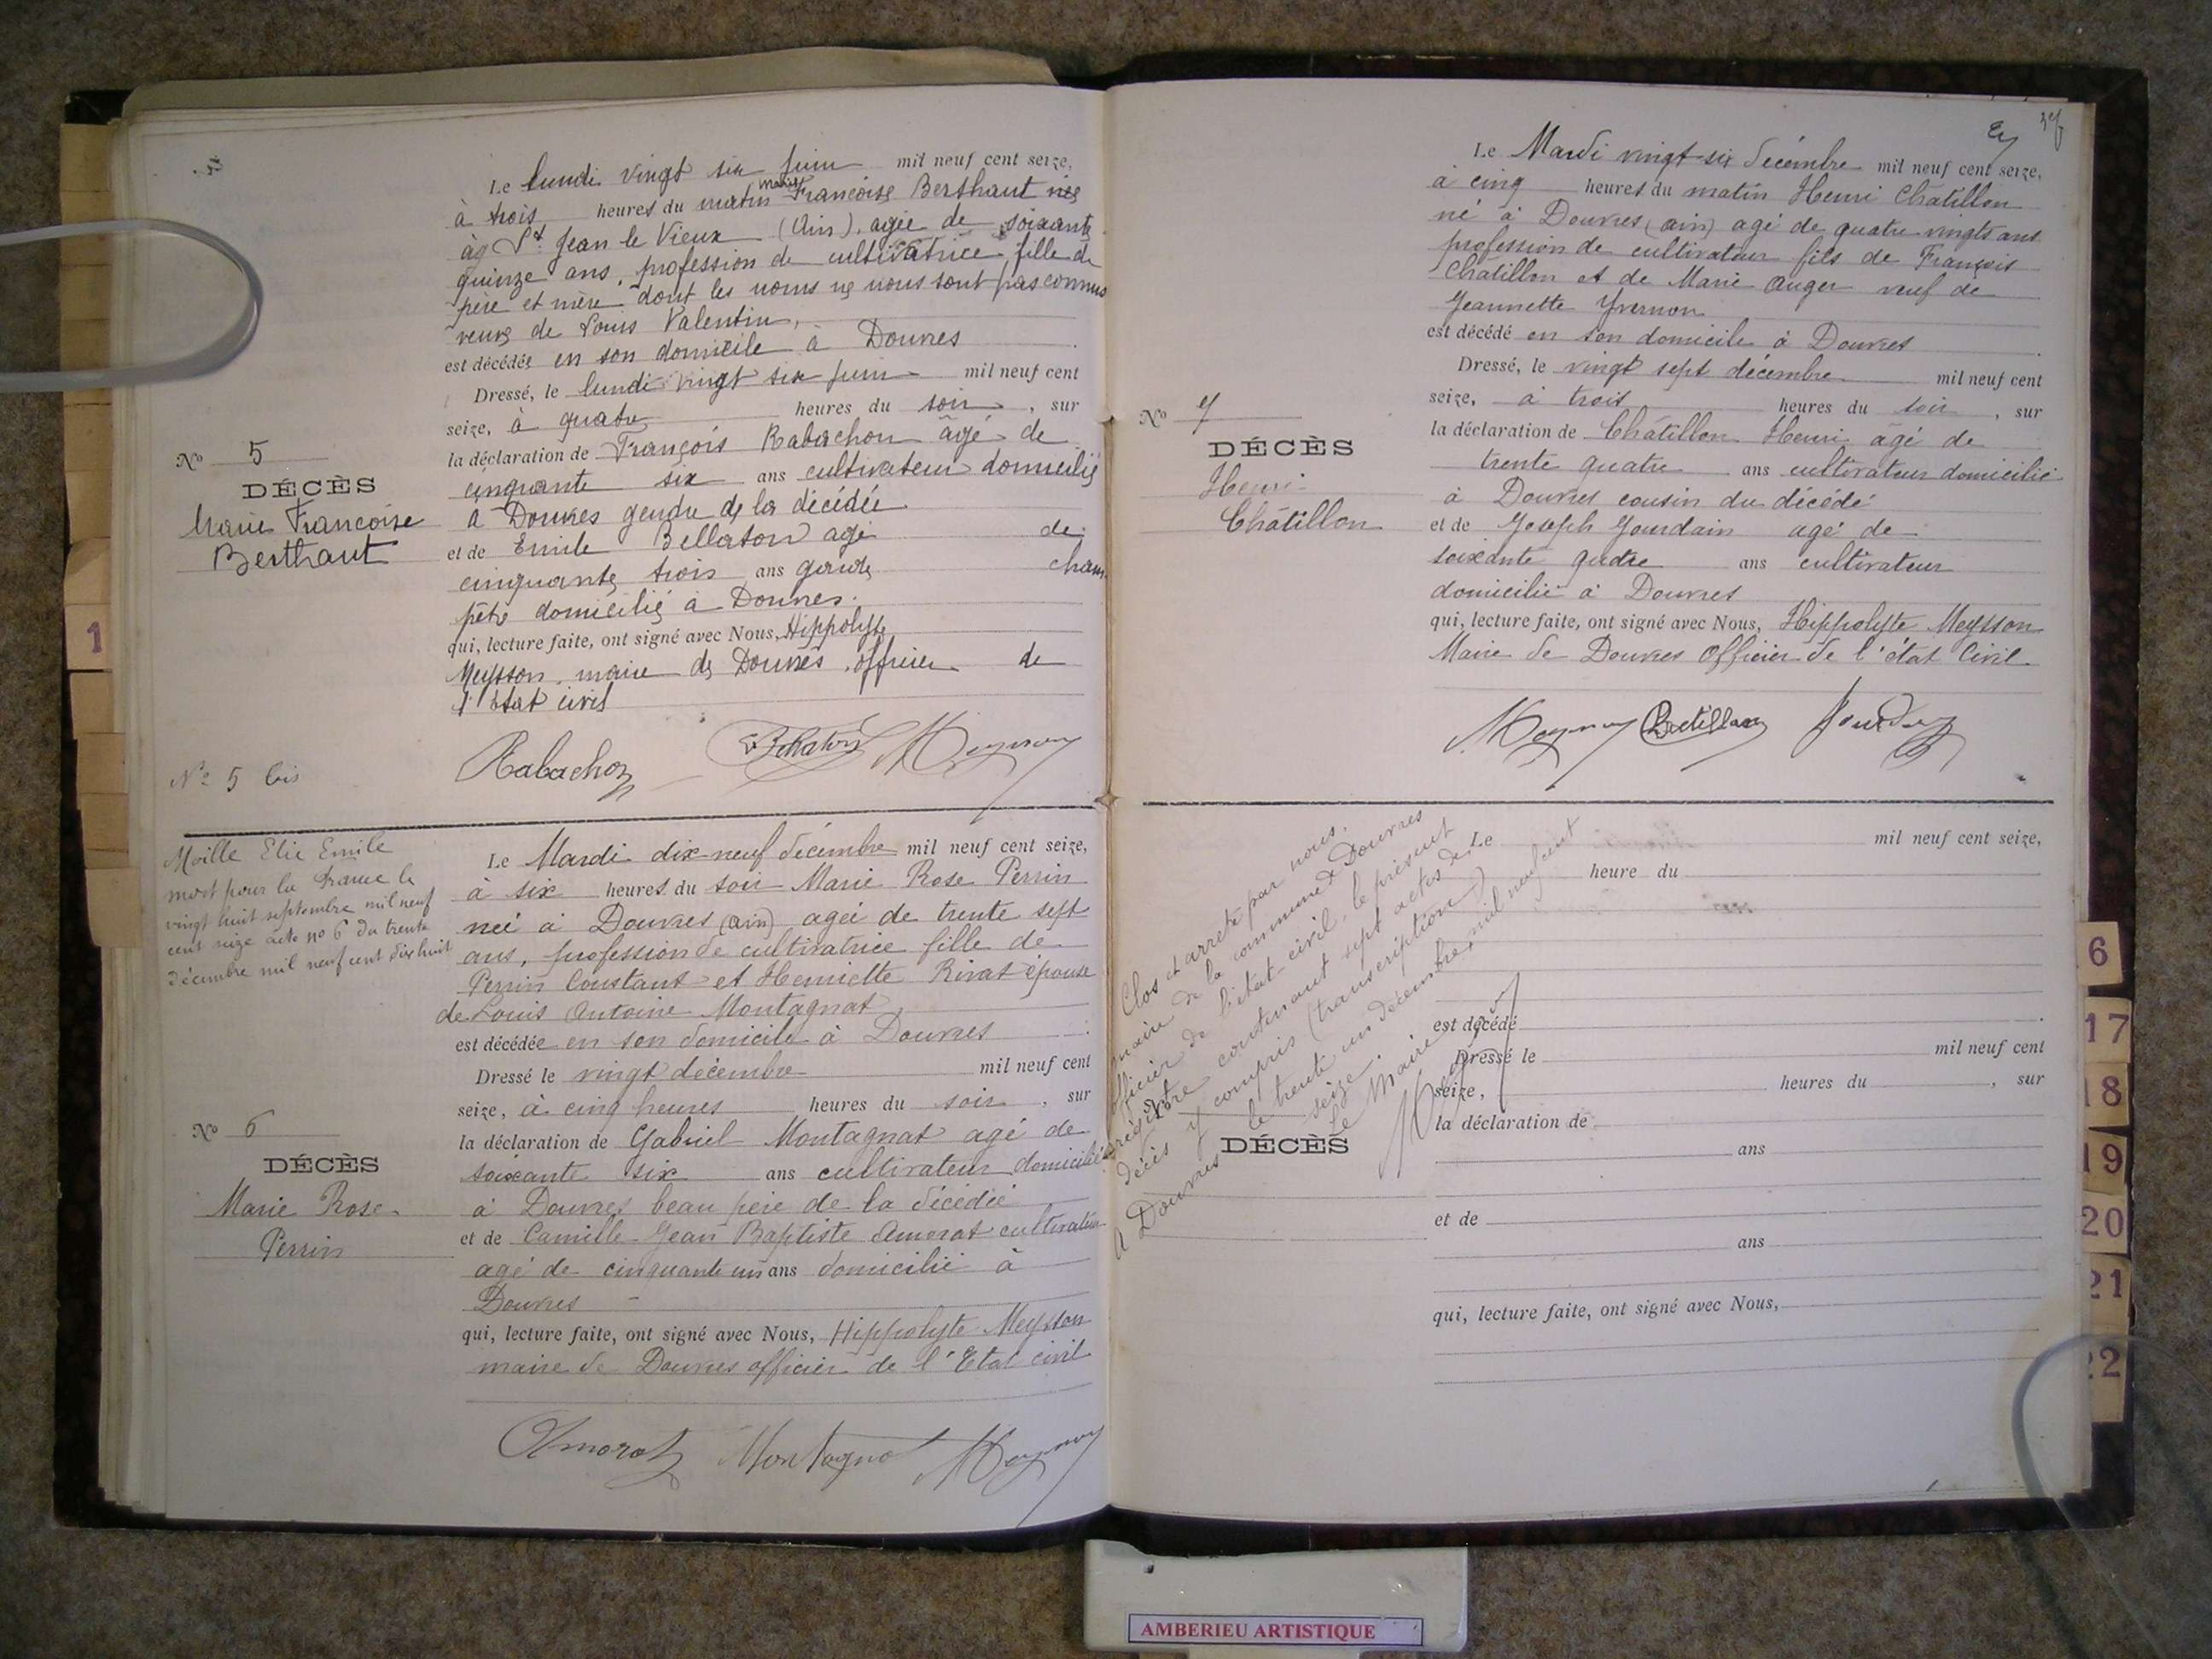 Le lundi vingt six juin mil neuf cent seize,
à trois heures du matin Marie Françoise Berthaut née
à St Jean le Vieux (Ain), agée de soixante
quinze ans, profession de cultivatrice, fille de
père et mère dont les noms ne nous sont pas connus
veuve de Louis Valentin,
est décédée en son domicile à Douvres
Dressé, le lundi vingt six juin mil neuf cent
seize, à quatre heures du soir, sur
la déclaration de François Rabachon âgé de
cinquante six ans cultivateur domicilié
à Douvres gendre de la décédée
et de Emile Bellaton agé de
cinquante trois ans garde cham
pêtre domicilié à Douvres.
qui, lecture faite, ont signé avec Nous, Hippolyte
Meysson, maire de Douvres, officier de
l'Etat civil
No 5
DÉCÈS
Marie Françoise
Berthaut
Rabachon
No 5 bis
Moille Elie Emile
mort pour la France le
vingt huit septembre mil neuf
cent seize acte no 6 du trente
décembre mil neuf cent dix huit
Le Mardi dix-neuf décembre mil neuf cent seize,
à six heures du soir Marie Rose Perrin
née à Douvres (ain) agée de trente sept
ans, profession de cultivatrice fille de
Perrin Constant et Henriette Rivat épouse
de Louis Antoine Montagnat
est décédée en son domicile à Douvres
Dressé le vingt décembre mil neuf cent
seize, à cinq heures heures du soir, sur
la déclaration de Gabriel Montagnat agé de
soixante six ans cultivateur domicilié
à Douvres beau père de la décédée
et de Camille Jean Baptiste Amorat cultivateur
agé de cinquante un ans domicilié à
Douvres
qui, lecture faite, ont signé avec Nous, Hippolyte Meysson
maire de Douvres officier de l'Etat civil
No 6
DÉCÈS
Marie Rose
Perrin
Amorat Montagnat
Le Mardi vingt-six décembre mil neuf cent seize,
à cinq heures du matin Henri Châtillon
né à Douvres (ain) agé de quatre vingts ans
profession de cultivateur fils de François
Châtillon et de Marie Auger veuf de
Jeannette Yvernon
est décédé en son domicile à Douvres
Dressé, le vingt sept décembre mil neuf cent
seize, à trois heures du soir, sur
la déclaration de Châtillon Henri agé de
trente quatre ans cultivateur domicilié
à Douvres cousin du décédé
et de Joseph Jourdain agé de
soixante quatre ans cultivateur
domicilié à Douvres
qui, lecture faite, ont signé avec Nous, Hippolyte Meysson
Maire de Douvres Officier de l'état Civil
No 7
DÉCÈS
Henri
Châtillon
Clos et arrêté par nous,
maire de la commune de Douvres
officier de l'état-civil, le présent
régistre contenant sept actes de
décès y compris (transcription)
A Douvres le trente un décembre mil neuf cent
seize.
Le Maire
Le mil neuf cent seize,
heure du
est décédé
Dressé le mil neuf cent
seize, heures du , sur
la déclaration de
ans
et de
ans
qui, lecture faite, ont signé avec Nous,
No
DÉCÈS
1
6
17
18
19
20
21
22
AMBERIEU ARTISTIQUE